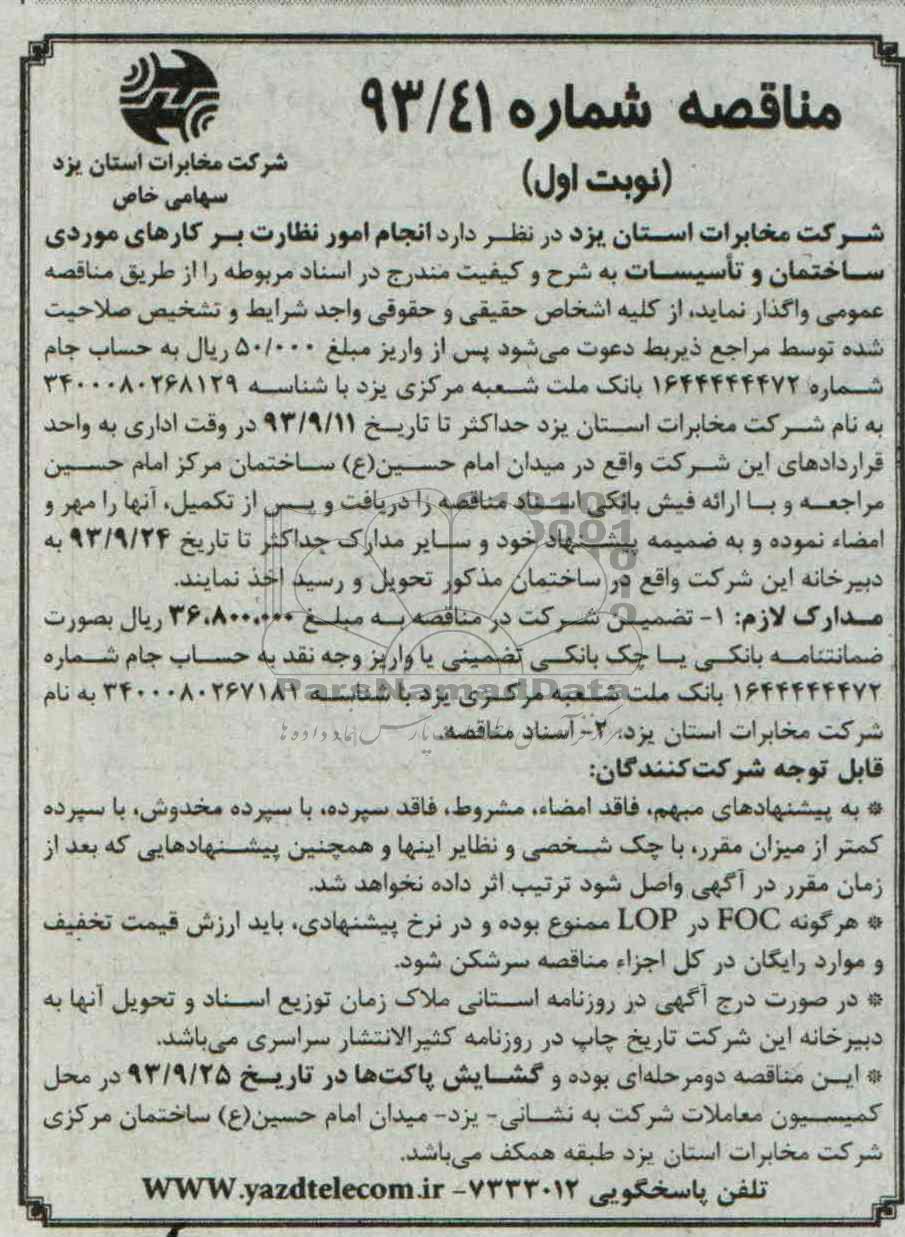 مناقصه شماره ۹۳/٤۱
(نوبت اول)
شرکت مخابرات استان یزد
سهامی خاص
شرکت مخابرات استان یزد در نظر دارد انجام امور نظارت بر کارهای موردی
ساختمان و تأسیسات به شرح و کیفیت مندرج در اسناد مربوطه را از طریق مناقصه
عمومی واگذار نماید، از کلیه اشخاص حقیقی و حقوقی واجد شرایط و تشخیص صلاحیت
شده توسط مراجع ذیربط دعوت می‌شود پس از واریز مبلغ ۵۰/۰۰۰ ریال به حساب جام
شماره ۱۶۴۴۴۴۴۴۷۲ بانک ملت شعبه مرکزی یزد با شناسه ۳۴۰۰۰۸۰۲۶۸۱۲۹
به نام شرکت مخابرات استان یزد حداکثر تا تاریخ ۹۳/۹/۱۱ در وقت اداری به واحد
قراردادهای این شرکت واقع در میدان امام حسین(ع) ساختمان مرکز امام حسین
مراجعه و با ارائه فیش بانکی اسناد مناقصه را دریافت و پس از تکمیل، آنها را مهر و
امضاء نموده و به ضمیمه پیشنهاد خود و سایر مدارک حداکثر تا تاریخ ۹۳/۹/۲۴ به
دبیرخانه این شرکت واقع در ساختمان مذکور تحویل و رسید اخذ نمایند.
مدارک لازم: ۱- تضمین شرکت در مناقصه به مبلغ ۳۶،۸۰۰،۰۰۰ ریال بصورت
ضمانتنامه بانکی یا چک بانکی تضمینی یا واریز وجه نقد به حساب جام شماره
۱۶۴۴۴۴۴۴۷۲ بانک ملت شعبه مرکزی یزد با شناسه ۳۴۰۰۰۸۰۲۶۷۱۸۹ به نام
شرکت مخابرات استان یزد، ۲- اسناد مناقصه.
PartNamadData
قابل توجه شرکت‌کنندگان:
* به پیشنهادهای مبهم، فاقد امضاء، مشروط، فاقد سپرده، با سپرده مخدوش، با سپرده
کمتر از میزان مقرر، با چک شخصی و نظایر اینها و همچنین پیشنهادهایی که بعد از
زمان مقرر در آگهی واصل شود ترتیب اثر داده نخواهد شد.
* هرگونه FOC در LOP ممنوع بوده و در نرخ پیشنهادی، باید ارزش قیمت تخفیف
و موارد رایگان در کل اجزاء مناقصه سرشکن شود.
* در صورت درج آگهی در روزنامه استانی ملاک زمان توزیع اسناد و تحویل آنها به
دبیرخانه این شرکت تاریخ چاپ در روزنامه کثیرالانتشار سراسری می‌باشد.
* این مناقصه دومرحله‌ای بوده و گشایش پاکت‌ها در تاریخ ۹۳/۹/۲۵ در محل
کمیسیون معاملات شرکت به نشانی- یزد- میدان امام حسین(ع) ساختمان مرکزی
شرکت مخابرات استان یزد طبقه همکف می‌باشد.
تلفن پاسخگویی ۷۲۳۳۰۱۲- WWW.yazdtelecom.ir